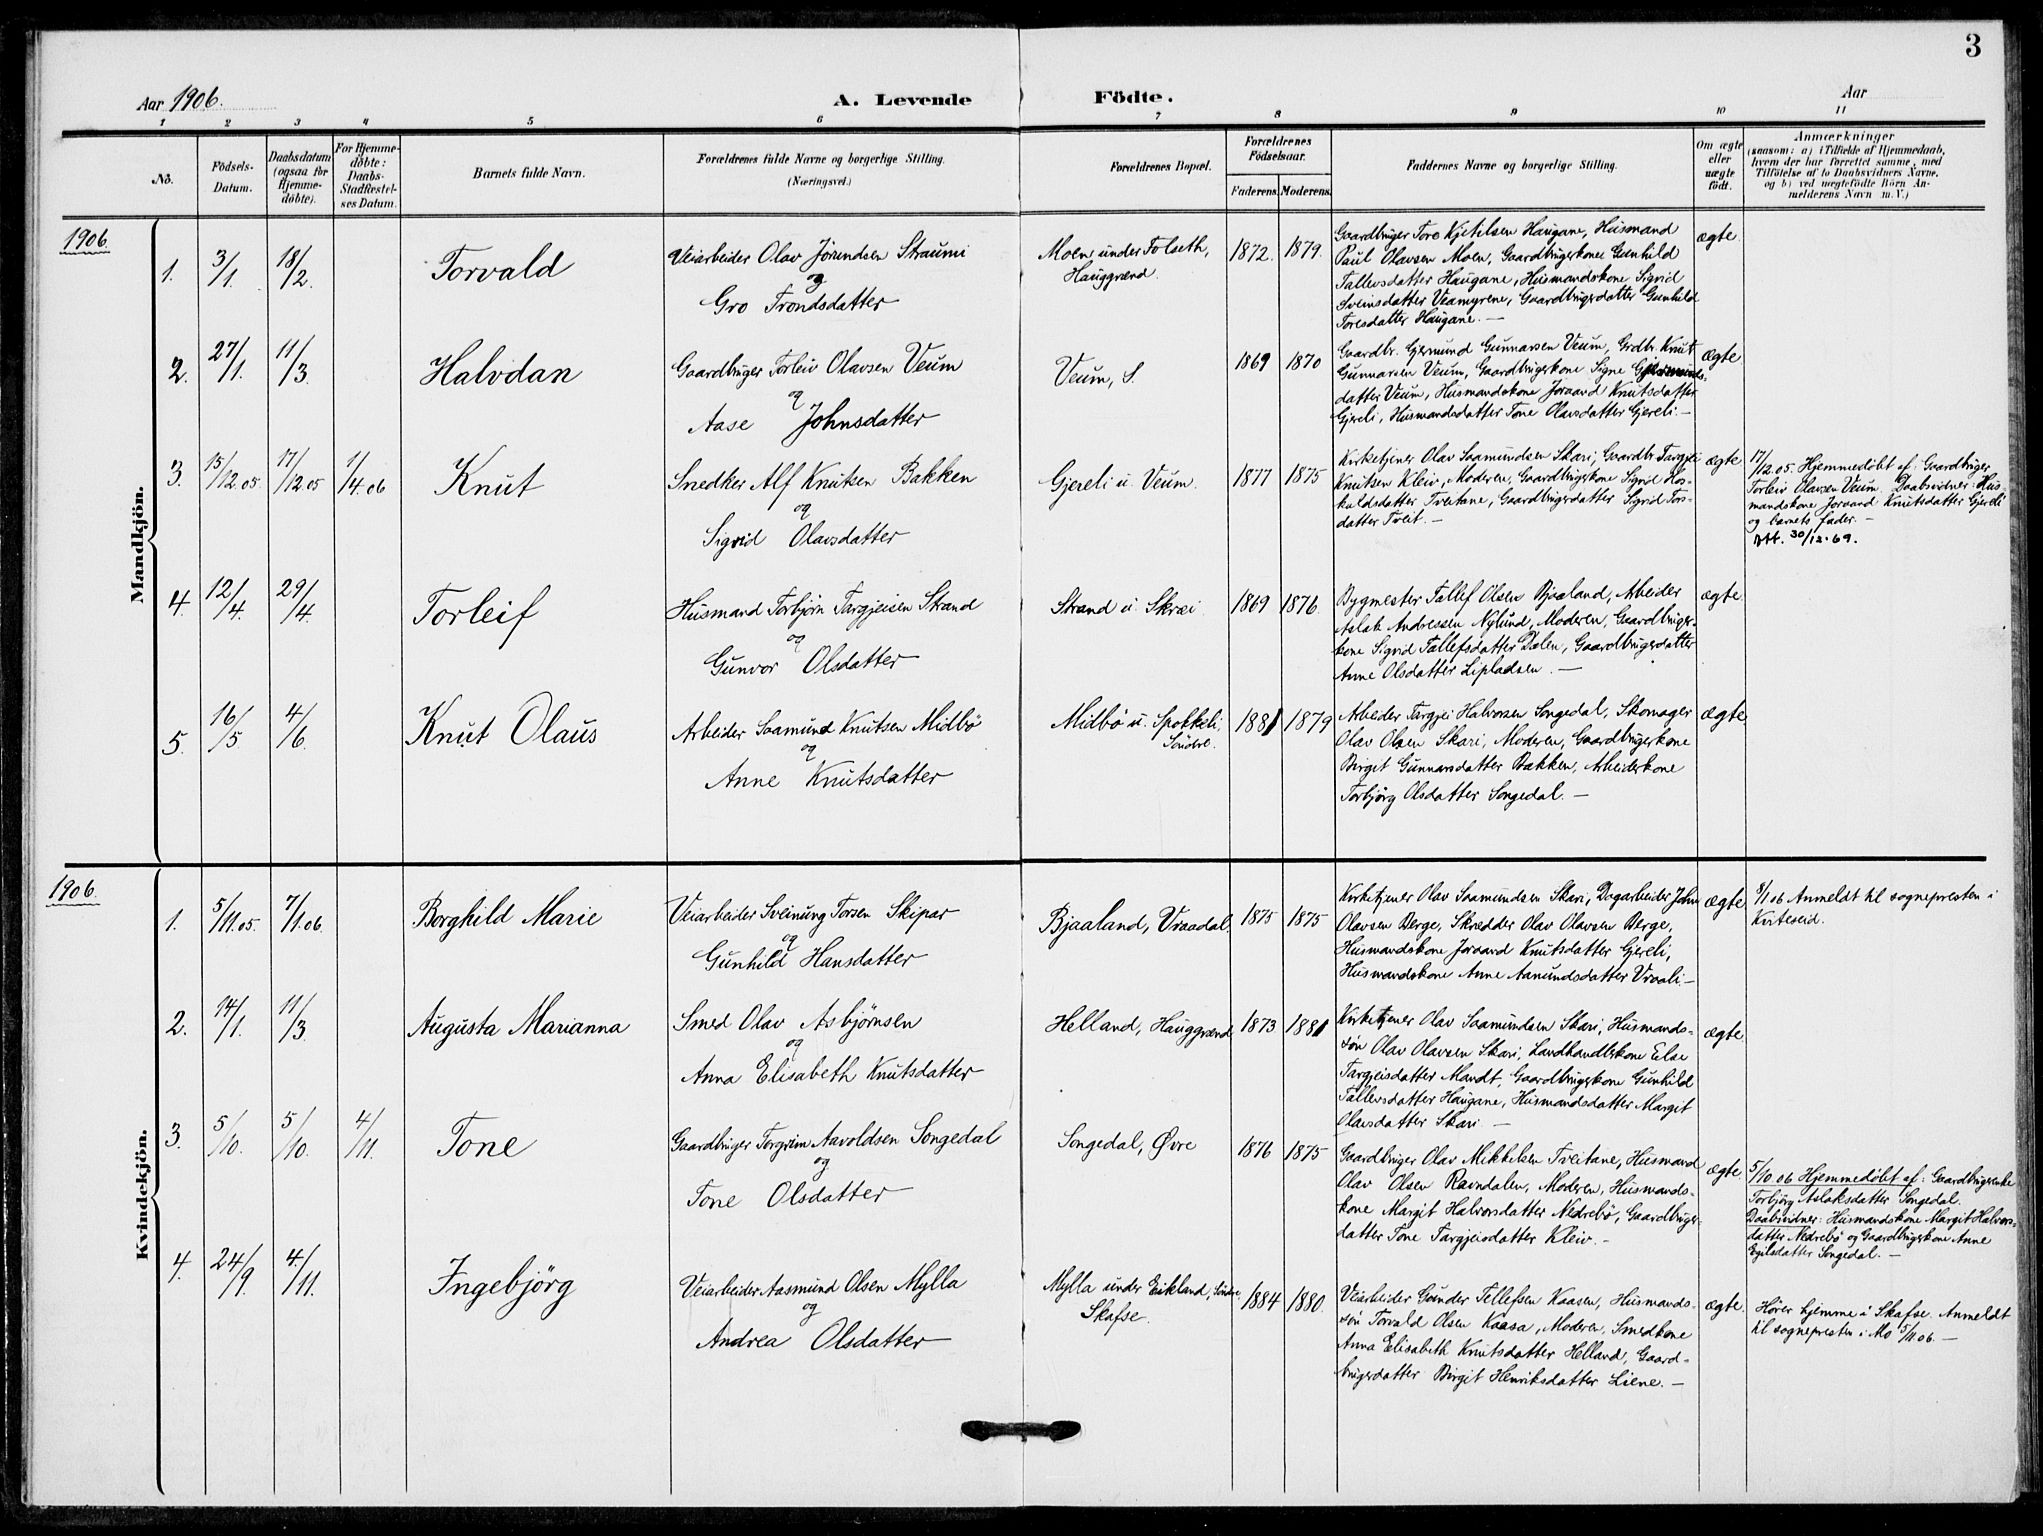 3
Aar 1906.
A. Levende Födte.
Aar
1 2 3 4 5 6 7 8 9 10 11
No.
Födsels-
Datum.
Daabsdatum
(ogsaa for
Hjemme-
döbte).
For Hjemme-
döbte:
Daabs-
Stadfæstel-
ses Datum.
Barnets fulde Navn.
Forældrenes fulde Navne og borgerlige Stilling.
(Næringsvei.)
Forældrenes Bopæl.
Forældrenes
Födselsaar.
Faderens. Moderens.
Faddernes Navne og borgerlige Stilling.
Om ægte
eller
uægte
födt.
Anmærkninger
(saasom: a) i Tilfælde af Hjemmedaab,
hvem der har forrettet samme, med
Tilföielse af to Daabsvidners Navne,
og b) ved uægtefödte Börn An-
melderens Navn m. V.)
1906.
Mandkjön.
1. 3/1. 18/2. Torvald
Veiarbeider Olav Jørundsen Straumi
og
Gro Trondsdatter
Moen under Folseth,
Hauggrænd.
1872. 1879.
Gaardbruger Tore Kjetilsen Haugane, Husmand
Paul Olavsen Moen, Gaardbrugerkone Gunhild
Tallevsdatter Haugane, Husmandskone Sigrid
Sveinsdatter Veamyrene, Gaardbrugerdatter Gunhild
Toresdatter Haugane. —
ægte.
2. 27/1. 11/3. Halvdan
Gaardbruger Torleiv Olavsen Veum
og
Aase Johnsdatter
Veum, S.
1869 1870
Gaardbr. Gjermund Gunnarsen Veum, Grdbr. Knut
Gunnarsen Veum, Gaardbrugerkone Signe Gjermunds-
datter Veum, Husmandskone Joraand Knutsdatter
Gjereli, Husmandsdatter Tone Olavsdatter Gjereli. —
ægte.
3. 15/12.05 17/12.05 1/4.06 Knut
Snedker Alf Knutsen Bakken
og
Sigrid Olavsdatter
Gjereli u. Veum.
1877 1875
Kirketjener Olav Saamundsen Skari, Gaardbr. Targjei
Knutsen Kleiv, Moderen, Gaardbrugerkone Sigrid Hos-
kuldsdatter Tveitane, Gaardbrugerdatter Sigrid Tors-
datter Tveit. —
ægte.
17/12.05. Hjemmedøbt af: Gaardbruger
Torleiv Olavsen Veum. Daabsvidner: Hus-
mandskone Joraand Knutsdatter Gjereli
og barnets fader. —
Att. 30/12.69.
4. 12/4. 29/4. Torleif
Husmand Torbjørn Targjeisen Strand
og
Gunvor Olsdatter
Strand u. Skræi.
1869 1876
Bygmester Tallef Olsen Bjaaland, Arbeider
Aslak Andressen Nylund, Moderen, Gaardbruger-
kone Sigrid Tallefsdatter Dalen, Gaardbrugerdatter
Anne Olsdatter Lipladsen. —
ægte.
5. 16/5. 4/6. Knut Olaus
Arbeider Saamund Knutsen Midbø
og
Anne Knutsdatter
Midbö u. Spokkeli,
Söndre.
1881 1879
Arbeider Targjei Halvorsen Songedal, Skomager
Olav Olsen Skari, Moderen, Gaardbrugerkone
Birgit Gunnarsdatter Bakken, Arbeiderkone
Torbjörg Olsdatter Songedal. —
ægte.
1906.
Kvindekjön.
1. 5/11.05. 7/1.06. Borghild Marie
Veiarbeider Sveinung Torsen Skipar
og
Gunhild Hansdatter
Bjaaland, Vraadal.
1875 1875
Kirketjener Olav Saamundsen Skari, Dagarbeider John
Olavsen Berge, Skrædder Olav Olavsen Berge,
Husmandskone Joraand Knutsdatter Gjereli,
Husmandskone Anne Aanundsdatter Vraali. —
ægte.
8/1.06 Anmeldt til sognepresten i
Kviteseid.
2. 14/1. 11/3. Augusta Marianna
Smed Olav Asbjørnsen
og
Anna Elisabeth Knutsdatter
Helland, Hauggrænd
1873 1881
Kirketjener Olav Saamundsen Skari, Husmands-
søn Olav Olavsen Skari, Landhandlskone Else
Targjeisdatter Mandt, Gaardbrugerkone Gunhild
Tallevsdatter Haugane, Husmandsdatter Margit
Olavsdatter Skari. —
ægte.
3. 5/10. 5/10. 4/11. Tone
Gaardbruger Torgrim Aavoldsen Songedal
og
Tone Olsdatter
Songedal, Øvre
1876 1875
Gaardbruger Olav Mikkelsen Tveitane, Husmand
Olav Olsen Ravndalen, Moderen, Husmands-
kone Margit Halvorsdatter Nedrebö, Gaardbruger-
datter Tone Targjeisdatter Kleiv. —
ægte.
5/10 06 Hjemmedøbt af: Gaardbrugerenke
Torbjörg Aslaksdatter Songedal.
Daabsvidner: Husmandskone Margit Halvors-
datter Nedrebö og Gaardbrugerkone Anne
Egilsdatter Songedal. —
4. 24/9. 4./11. Ingebjörg
Veiarbeider Aasmund Olsen Mylla
og
Andrea Olsdatter
Mylla under Eikland, Söndre,
Skafse.
1884 1880.
Veiarbeider Gunder Tellefsen Kaasen, Husmands-
søn Torvald Olsen Kaasa, Moderen, Smedkone
Anna Elisabeth Knutsdatter Helland, Gaard-
brugerdatter Birgit Henriksdatter Liene. —
ægte.
Hører hjemme i Skafse. Anmeldt
til sognepresten i Mo 5/11.06. —